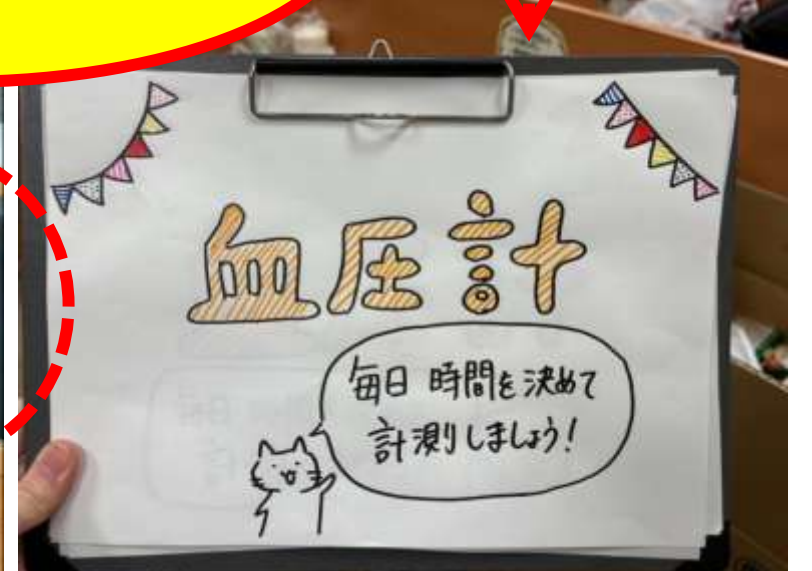 血圧計
毎日 時間を決めて
計測りしましょう!